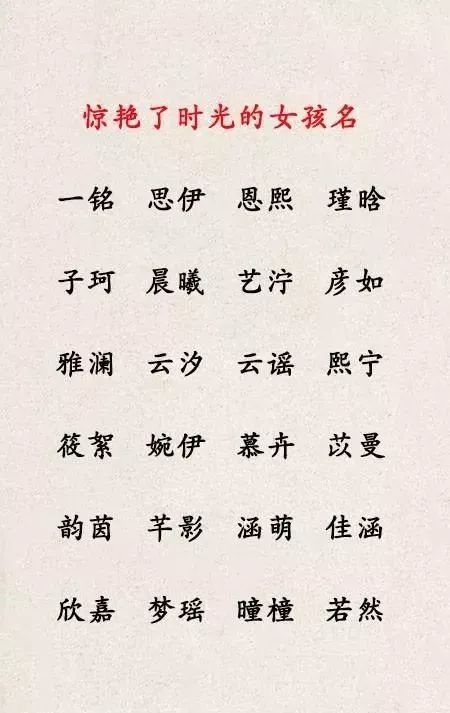 惊艳了时光的女孩名
一铭 思伊 恩熙 瑾晗
子珂 晨曦 艺泞 彦如
雅澜 云汐 云谣 熙宁
筱絮 婉伊 慕卉 苡曼
韵茵 芊影 涵萌 佳涵
欣嘉 梦瑶 曈橦 若然